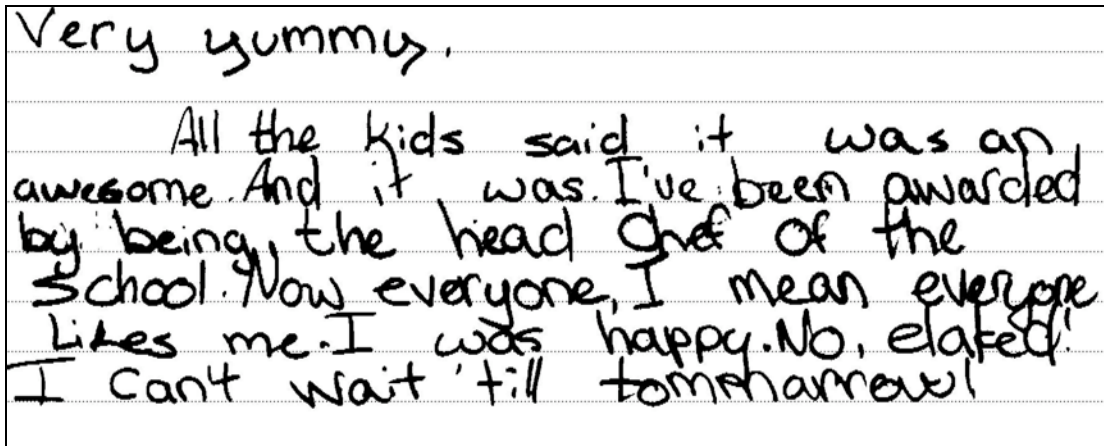 Very yummy.
All the kids said it was an
awesome. And it was. I've been awarded
by being, the head chef of the
School. Now everyone, I mean everyone
Likes me. I was happy. No, elated!
I can't wait 'till